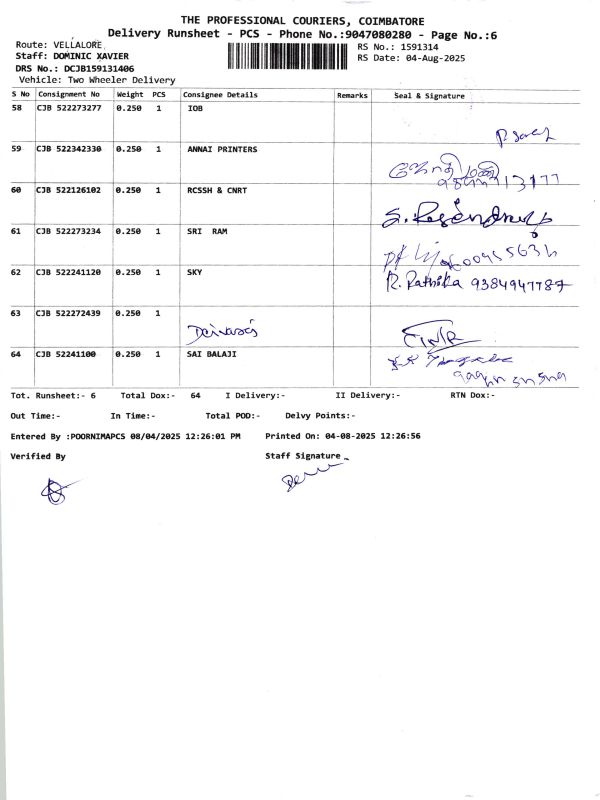 THE PROFESSIONAL COURIERS, COIMBATORE
Delivery Runsheet - PCS - Phone No.:9047080280 - Page No.:6
Route: VELLALORE
RS No.: 1591314
Staff: DOMINIC XAVIER
RS Date: 04-Aug-2025
DRS No.: DCJB159131406
Vehicle: Two Wheeler Delivery
S No Consignment No Weight PCS Consignee Details Remarks Seal & Signature
58 CJB 522273277 0.250 1 IOB
59 CJB 522342330 0.250 1 ANNAI PRINTERS
60 CJB 522126102 0.250 1 RCSSH & CNRT
S. Rajendran
61 CJB 522273234 0.250 1 SRI RAM
62 CJB 522241120 0.250 1 SKY
R. Rathika 9384947787
63 CJB 522272439 0.250 1
64 CJB 52241100 0.250 1 SAI BALAJI
Tot. Runsheet:- 6 Total Dox:- 64 I Delivery:- II Delivery:- RTN Dox:-
Out Time:- In Time:- Total POD:- Delvy Points:-
Entered By :POORNIMAPCS 08/04/2025 12:26:01 PM Printed On: 04-08-2025 12:26:56
Verified By Staff Signature